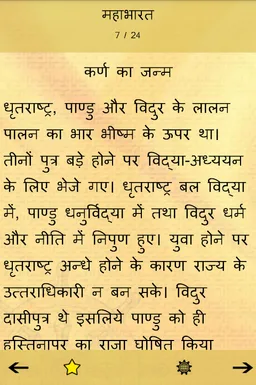 महाभारत
7 / 24
कर्ण का जन्म
धृतराष्ट्र, पाण्डु और विदुर के लालन
पालन का भार भीष्म के ऊपर था।
तीनों पुत्र बड़े होने पर विद्या-अध्ययन
के लिए भेजे गए। धृतराष्ट्र बल विद्या
में, पाण्डु धनुर्विद्या में तथा विदुर धर्म
और नीति में निपुण हुए। युवा होने पर
धृतराष्ट्र अन्धे होने के कारण राज्य के
उत्तराधिकारी न बन सके। विदुर
दासीपुत्र थे इसलिये पाण्डु को ही
हस्तिनापुर का राजा घोषित किया